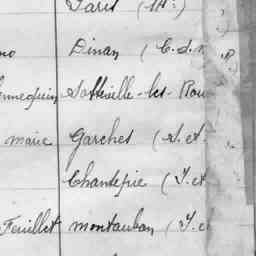 Paris (1
no Dinan (C.d.N
nnequin Sotteville-les-Rou
marie Garches (S.et.
Chantepie (I.et
Feuillet montauban (I.e